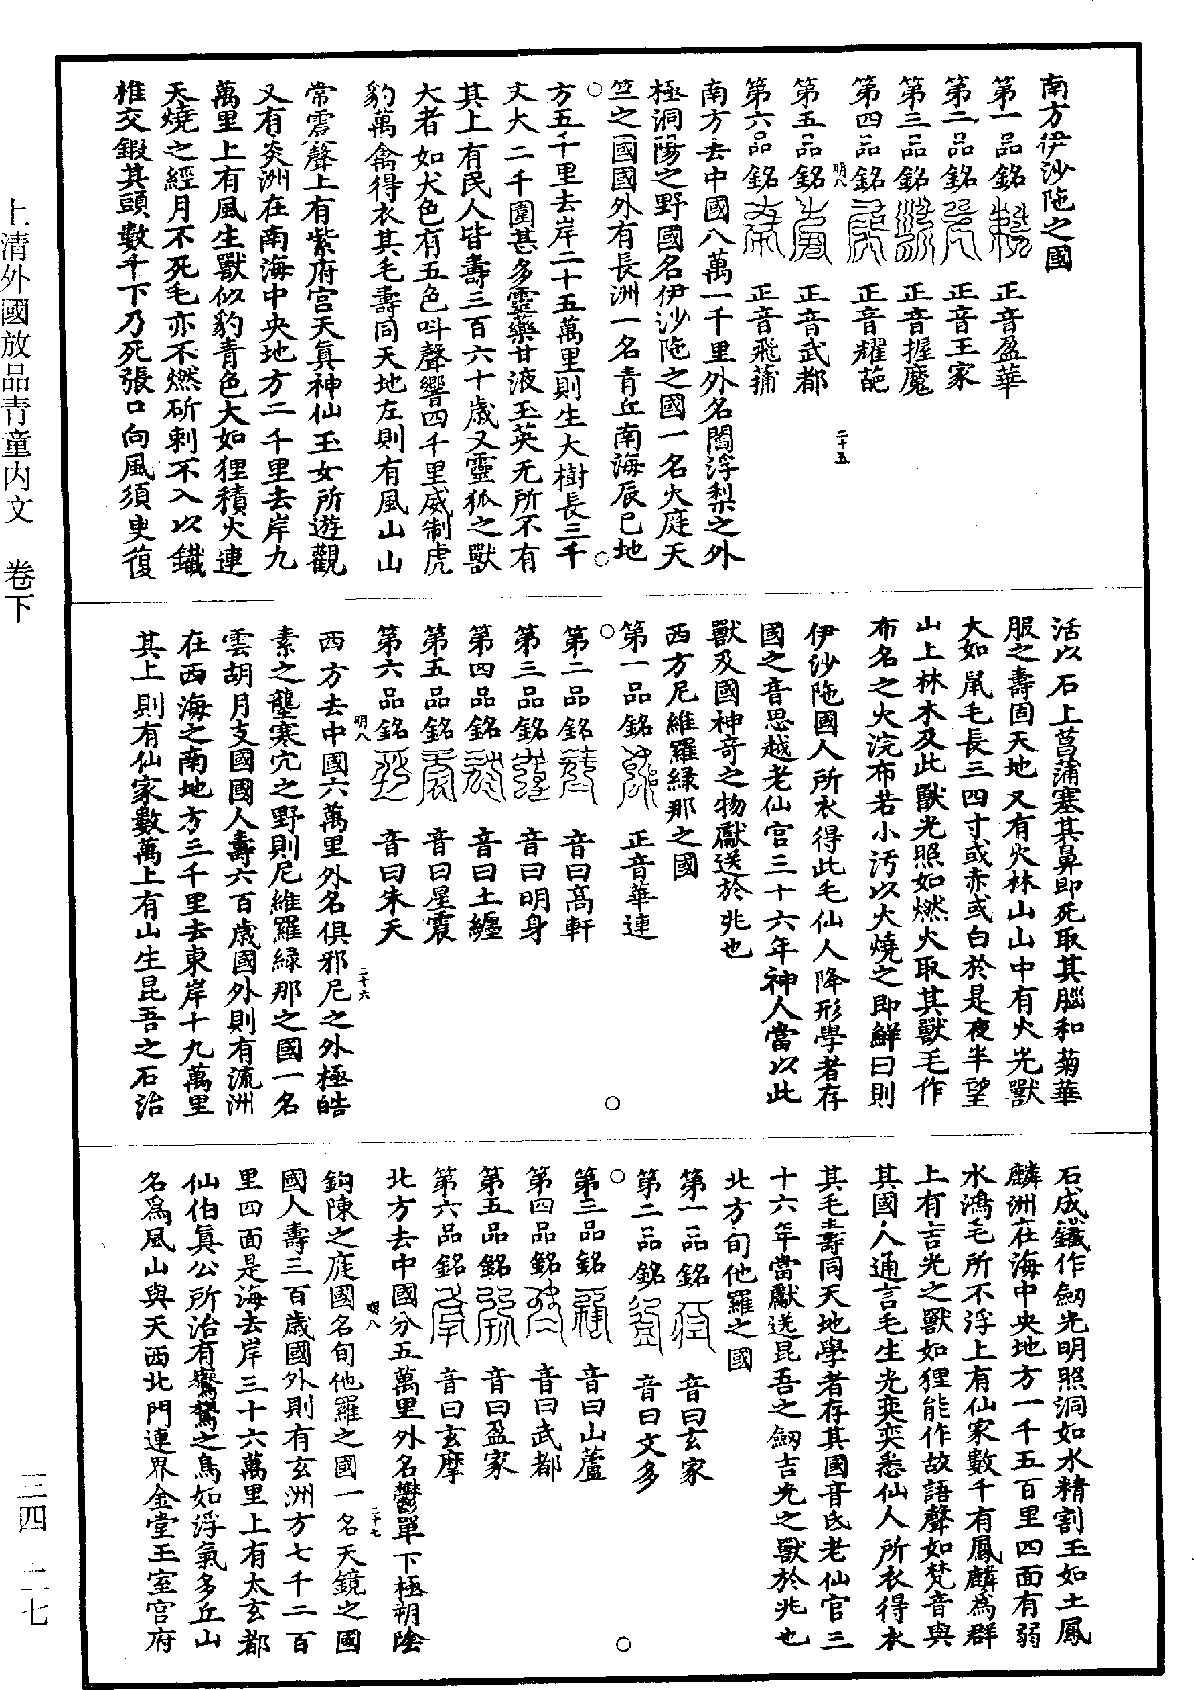 南方伊沙陁之國
第一品銘 正音盈華
第二品銘 正音王家
第三品銘 正音握魔
第四品銘 正音耀葩
明八
第五品銘 正音武都
二十五
第六品銘 正音飛蒱
南方去中國八萬一千里外名閻浮梨之外
極洞陽之野國名伊沙陁之國一名火庭天
竺之國國外有長洲一名青丘南海辰巳地
方五千里去岸二十五萬里則生大樹長三千
丈大二千圍甚多靈藥甘液玉英无所不有
其上有民人皆壽三百六十歲又靈狐之獸
大者如犬色有五色呌聲響四千里威制虎
豹萬禽得衣其毛壽同天地左則有風山山
常震聲上有紫府宫天真神仙玉女所遊觀
又有炎洲在南海中央地方二千里去岸九
萬里上有風生獸似豹青色大如狸積火連
天燒之經月不死毛亦不燃斫刺不入以鐵
椎交鍛其頭數千下乃死張口向風須臾復
活以石上菖蒲塞其鼻即死取其腦和菊華
服之壽固天地又有火林山山中有火光獸
大如鼠毛長三四寸或赤或白於是夜半望
山上林木及此獸光照如燃火取其獸毛作
布名之火浣布若小汚以火燒之即鮮曰則
伊沙陁國人所衣得此毛仙人降形學者存
國之音思越老仙官三十六年神人當以此
獸及國神奇之物獻送於兆也
西方尼維羅緑那之國
第一品銘 正音華連
第二品銘 音曰高軒
第三品銘 音曰明身
第四品銘 音曰土纏
第五品銘 音曰星震
明八
第六品銘 音曰朱天
二十六
西方去中國六萬里外名俱邪尼之外極皓
素之壟寒穴之野則尼維羅緑那之國一名
雲胡月支國國人壽六百歲國外則有流洲
在西海之南地方三千里去東岸十九萬里
其上則有仙家數萬上有山生昆吾之石治
石成鐵作劒光明照洞如水精割玉如土鳳
麟洲在海中央地方一千五百里四面有弱
水鴻毛所不浮上有仙家數千有鳳麟爲群
上有吉光之獸如狸能作故語聲如梵音與
其國人通言毛生光奕奕悉仙人所衣得衣
其毛壽同天地學者存其國音氐老仙官三
十六年當獻送昆吾之劒吉光之獸於兆也
北方旬他羅之國
第一品銘 音曰玄家
第二品銘 音曰文多
第三品銘 音曰山蘆
第四品銘 音曰武都
第五品銘 音曰盈家
第六品銘 音曰玄摩
明八
北方去中國分五萬里外名鬱單下極朔陰
二十七
鈎陳之庭國名旬他羅之國一名天鏡之國
國人壽三百歲國外則有玄洲方七千二百
里四面是海去岸三十六萬里上有太玄都
仙伯真公所治有鸑鷟之鳥如浮氣多丘山
名爲風山與天西北門連界金堂玉室宫府
上清外國放品青童内文 卷下
三四 二七